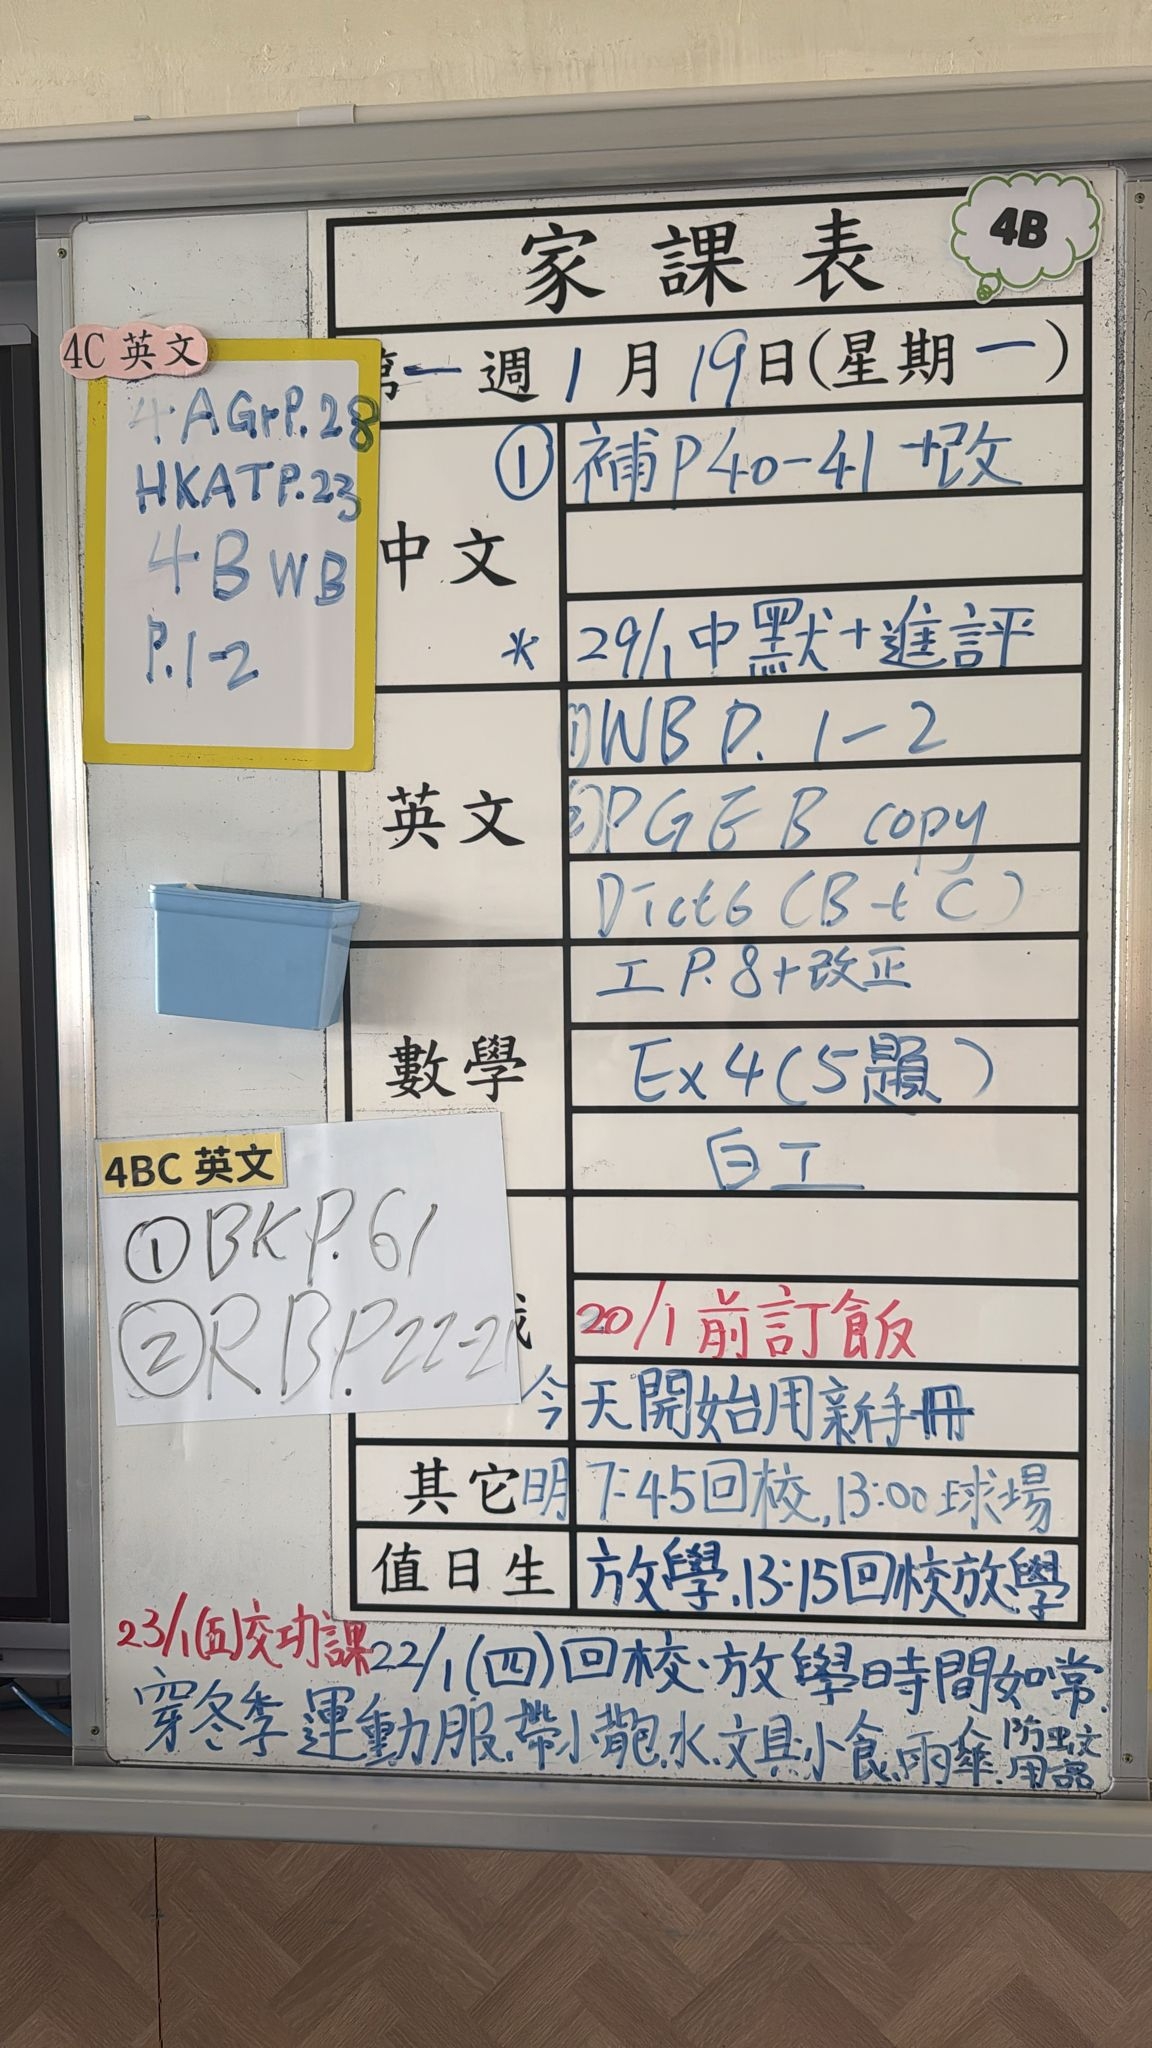 4B
家課表
第一週 1月19日(星期一)
4C 英文
4AGrP.28
HKATP.23
4B WB
P.1-2
中文
① 補P40-41+改
* 29/1 中默+進評
英文
①WB P. 1-2
②PGEB copy
Dict6 (B+C)
數學
工 P.8+改正
Ex4(5題)
白工
4BC 英文
① BK P. 61
② R.B P. 22-2
20/1 前訂飯
今天開始用新手冊
其它 明 7:45回校,13:00球場
值日生 放學,13:15回校放學
23/1(五)交功課 22/1(四)回校、放學時間如常
穿冬季運動服,帶小背包,水,文具,小食,雨傘,防蚊
用品